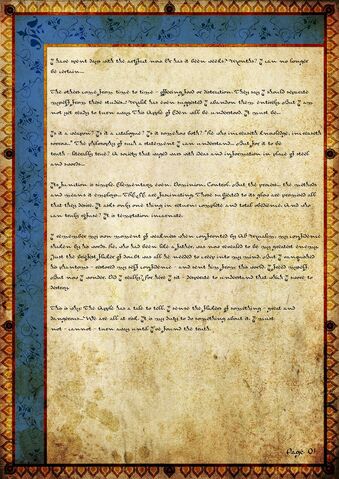 I have spent days with the artifact now. Or has it been weeks? Months? I can no longer
be certain...
The others come from time to time - offering food or distraction. They say I should separate
myself from these studies. Malik has even suggested I abandon them entirely. But I am
not yet ready to turn away. This Apple of Eden will be understood. It must be...
Is it a weapon? Is it a catalogue? Is it somehow both? "He who increaseth knowledge, increaseth
sorrow..." The philosophy of such a statement I can understand... But for it to be
truth - literally true? A society that waged wars with ideas and information in place of steel
and swords...
Its function is simple. Elementary even. Dominion. Control. But the process... the methods
and means it employs... THESE are fascinating. Those subjected to its glow are promised all
that they desire. It asks only one thing in return: complete and total obedience. And who
can truly refuse? It is temptation incarnate.
I remember my own moment of weakness when confronted by Al Mualim, my confidence
shaken by his words. He, who had been like a father, was now revealed to be my greatest enemy.
Just the briefest flicker of doubt was all he needed to creep into my mind. But I vanquished
his phantoms - restored my self confidence - and sent him from this world. I freed myself.
But now I wonder. Did I really? For here I sit - desperate to understand that which I swore to
destroy.
This is why: The Apple has a tale to tell. I sense the flickers of something - great and
dangerous... We are all at risk. It is my duty to do something about it. I must
not - cannot - turn away until I've found the truth.
Page 01